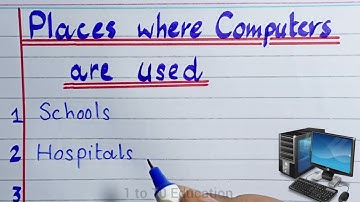 Places where Computers
are used
1 Schools
2 Hospitals
3
1 to 10 Education